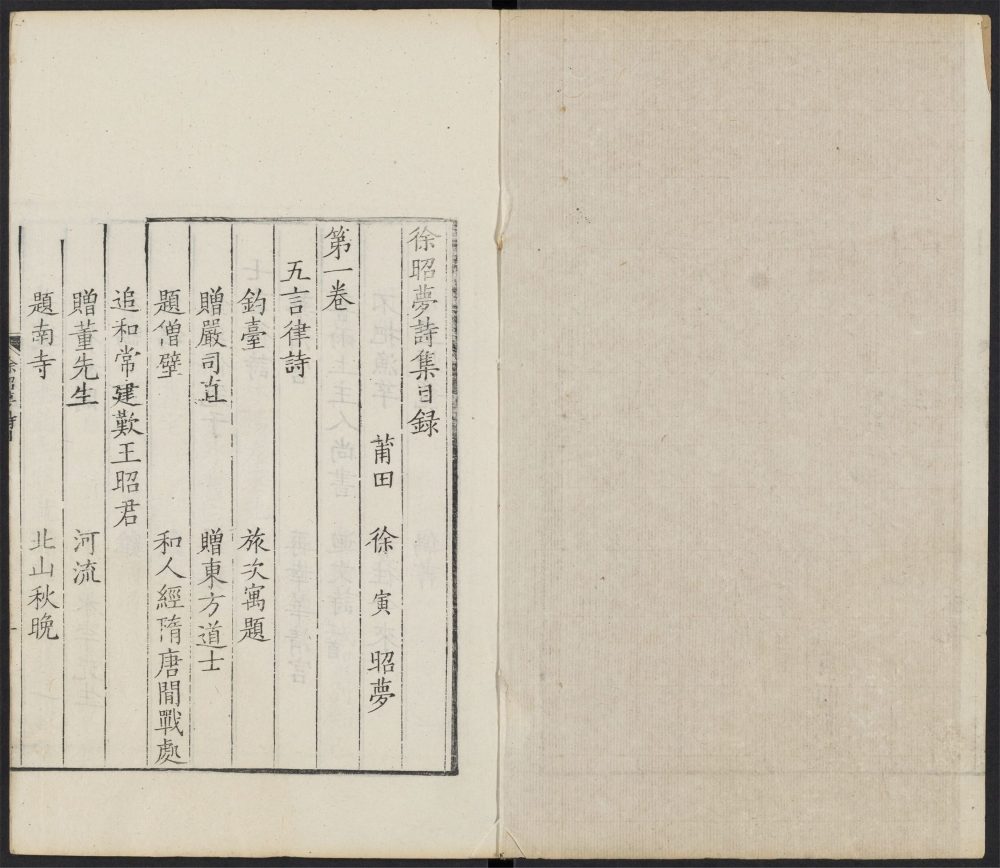 徐昭夢詩集目錄
莆田 徐 寅 昭夢
第一卷
五言律詩
釣臺 旅次寓題
贈嚴司直 贈東方道士
題僧壁 和人經隋唐閒戰處
追和常建歎王昭君
贈董先生 河流
題南寺 北山秋晚